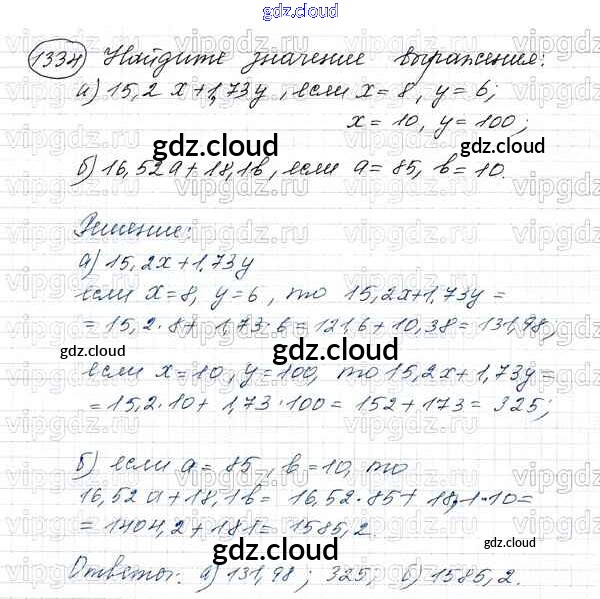 gdz.cloud
1334 Найдите значение выражения:
а) 15,2 x + 1,73 y, если x = 8, y = 6;
x = 10, y = 100;
gdz.cloud gdz.cloud
б) 16,52a + 18,1b, если a = 85, b = 10.
Решение:
а) 15,2x + 1,73y
если x = 8, y = 6, то 15,2x + 1,73y =
= 15,2 · 8 + 1,73 · 6 = 121,6 + 10,38 = 131,98;
gdz.cloud gdz.cloud gdz.cloud
если x = 10, y = 100, то 15,2x + 1,73y =
= 15,2 · 10 + 1,73 · 100 = 152 + 173 = 325;
б) если a = 85, b = 10, то
16,52a + 18,1b = 16,52 · 85 + 18,1 · 10 =
= 1404,2 + 181 = 1585,2.
gdz.cloud gdz.cloud
Ответы: а) 131,98; 325; б) 1585,2.